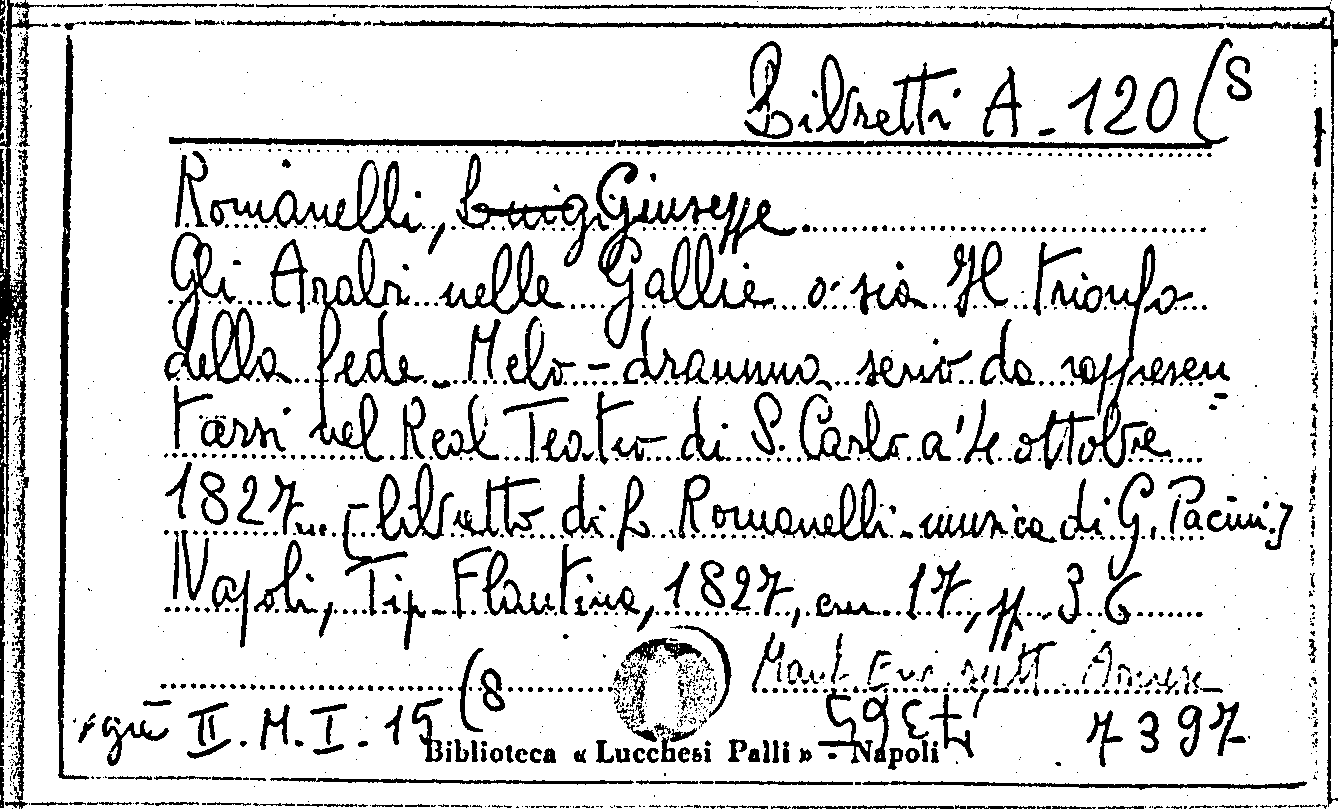 Libretti A - 120 (8
Romanelli, Luigi Giuseppe
Gli Arabi nelle Gallie o sia Il trionfo
della fede - Melo-dramma serio da rappresen
tarsi nel Real Teatro di S. Carlo a' 4 ottobre
1827. [libretto di L Romanelli - musica di G. Pacini]
Napoli, Tip. Flautina, 1827, cm. 17, pp. 36
II. M. I. 15 (8
7397
Biblioteca « Lucchesi Palli » - Napoli